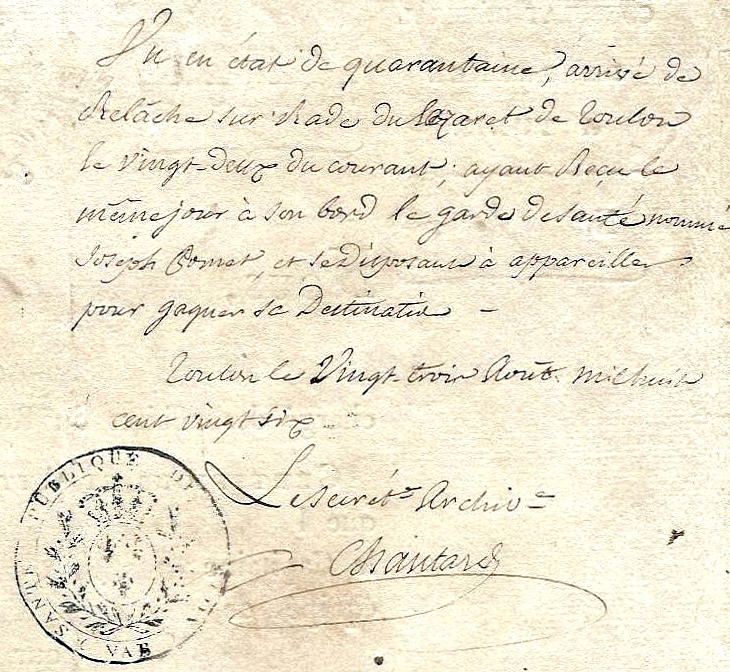 Vu en état de quarantaine, arrivé de
Relâche sur Rade du Lazaret de Toulon
le vingt-deux du courant; ayant Reçu le
même jour à son bord le garde de santé nommé
Joseph Comet, et se Disposant à appareiller
pour gagner sa Destination -
Toulon le Vingt-trois Août mil huit
cent vingt six
Le secrét.re Archiv.te
Chautard
SANTÉ PUBLIQUE DE TOULON
VAR